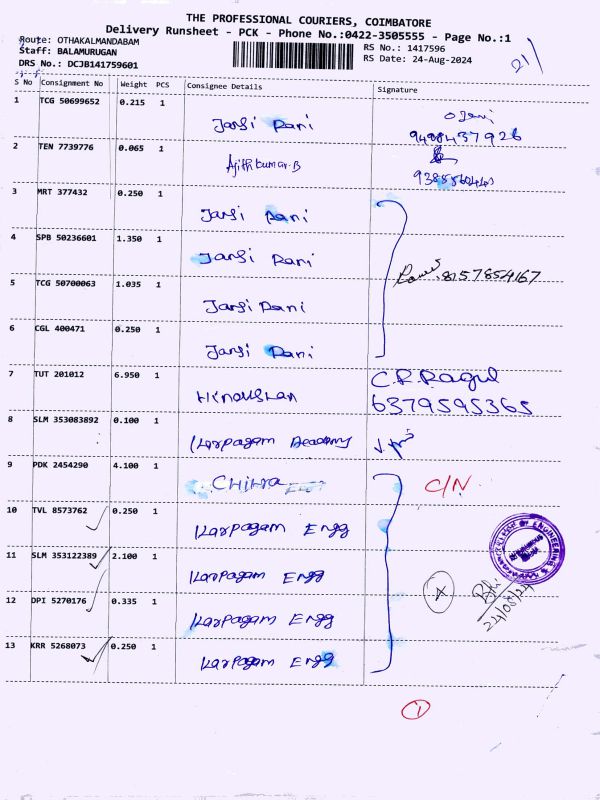 THE PROFESSIONAL COURIERS, COIMBATORE
Delivery Runsheet - PCK - Phone No.:0422-3505555 - Page No.:1
Route: OTHAKALMANDABAM
Staff: BALAMURUGAN
DRS No.: DCJB141759601
RS No.: 1417596
RS Date: 24-Aug-2024
21/
S No Consignment No Weight PCS Consignee Details Signature
1 TCG 50699652 0.215 1 Jansi Rani
2 TEN 7739776 0.065 1 Ajithkumar.B
3 MRT 377432 0.250 1 Jansi Rani
4 SPB 50236601 1.350 1 Jansi Rani 8157854167
5 TCG 50700063 1.035 1 Jansi Rani
6 CGL 400471 0.250 1 Jansi Rani
7 TUT 201012 6.950 1 Hindusthan C.R.Ragul
6379595365
8 SLM 353083892 0.100 1 Karpagam Academy
9 PDK 2454290 4.100 1 C/N
10 TVL 8573762 0.250 1 Karpagam Engg
11 SLM 353122389 2.100 1 Karpagam Engg
12 DPI 5270176 0.335 1 Karpagam Engg
24/08/24
13 KRR 5268073 0.250 1 Karpagam Engg
1